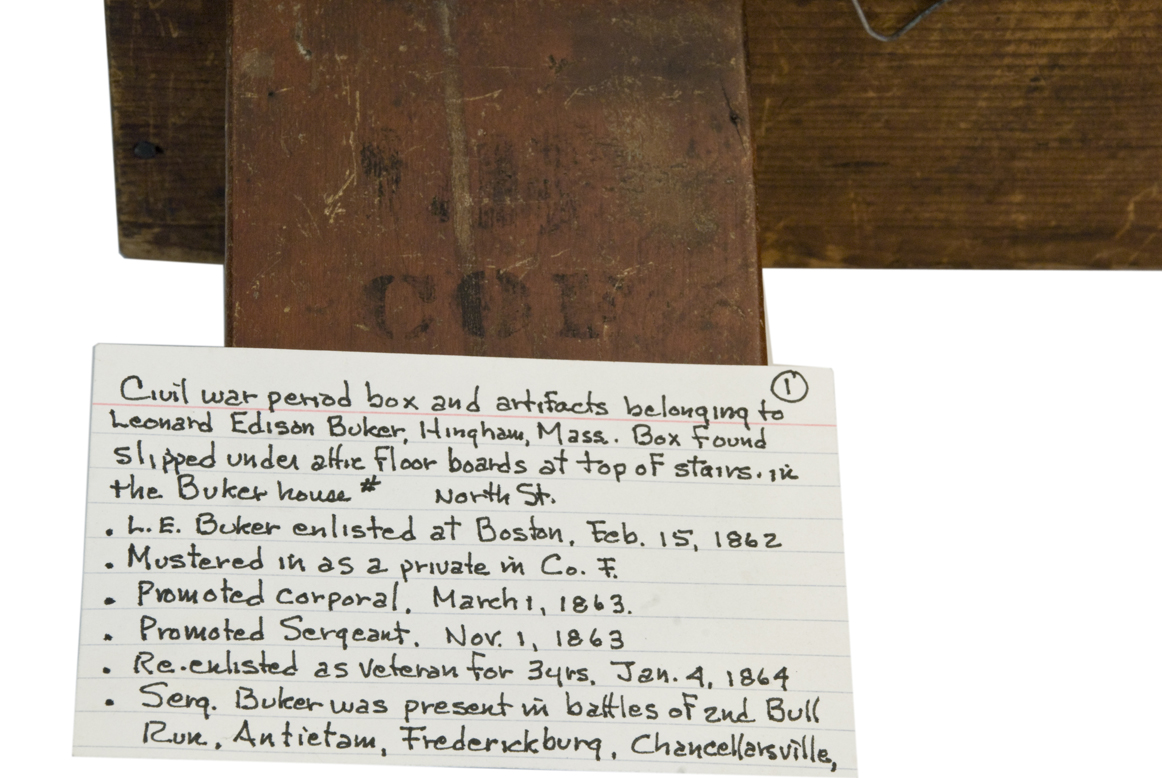 COF
①
Civil war period box and artifacts belonging to
Leonard Edison Buker, Hingham, Mass. Box found
slipped under attic floor boards at top of stairs. in
the Buker house # North St.
• L.E. Buker enlisted at Boston, Feb. 15, 1862
• Mustered in as a private in Co. F.
• Promoted corporal. March 1, 1863.
• Promoted Sergeant. Nov. 1, 1863
• Re-enlisted as veteran for 3yrs. Jan. 4, 1864
• Serg. Buker was present in battles of 2nd Bull
Run, Antietam, Frederickburg, Chancellarsville,